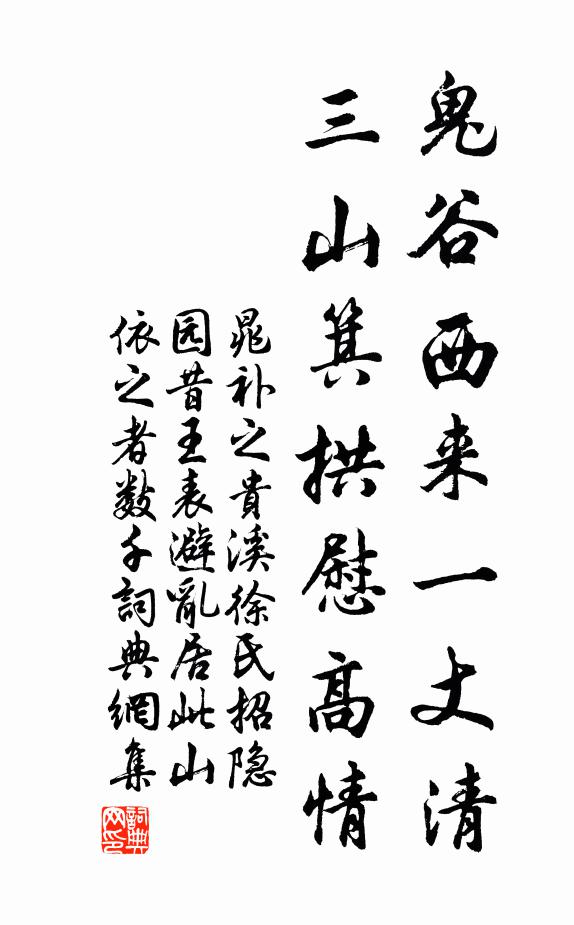 鬼谷西来一丈清
三山箕拱慰高情
晁补之貴溪徐氏招隐
园昔王表避亂居此山
依之者數千詞典網集
詞典
网印